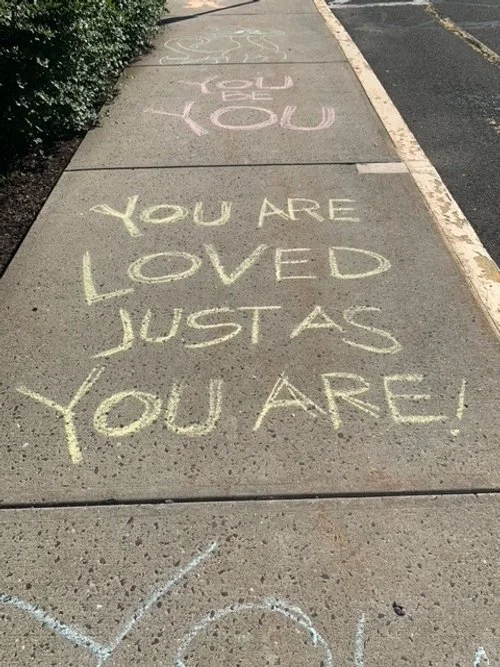 YOU
BE
YOU
YOU ARE
LOVED
JUST AS
YOU ARE!
YOU